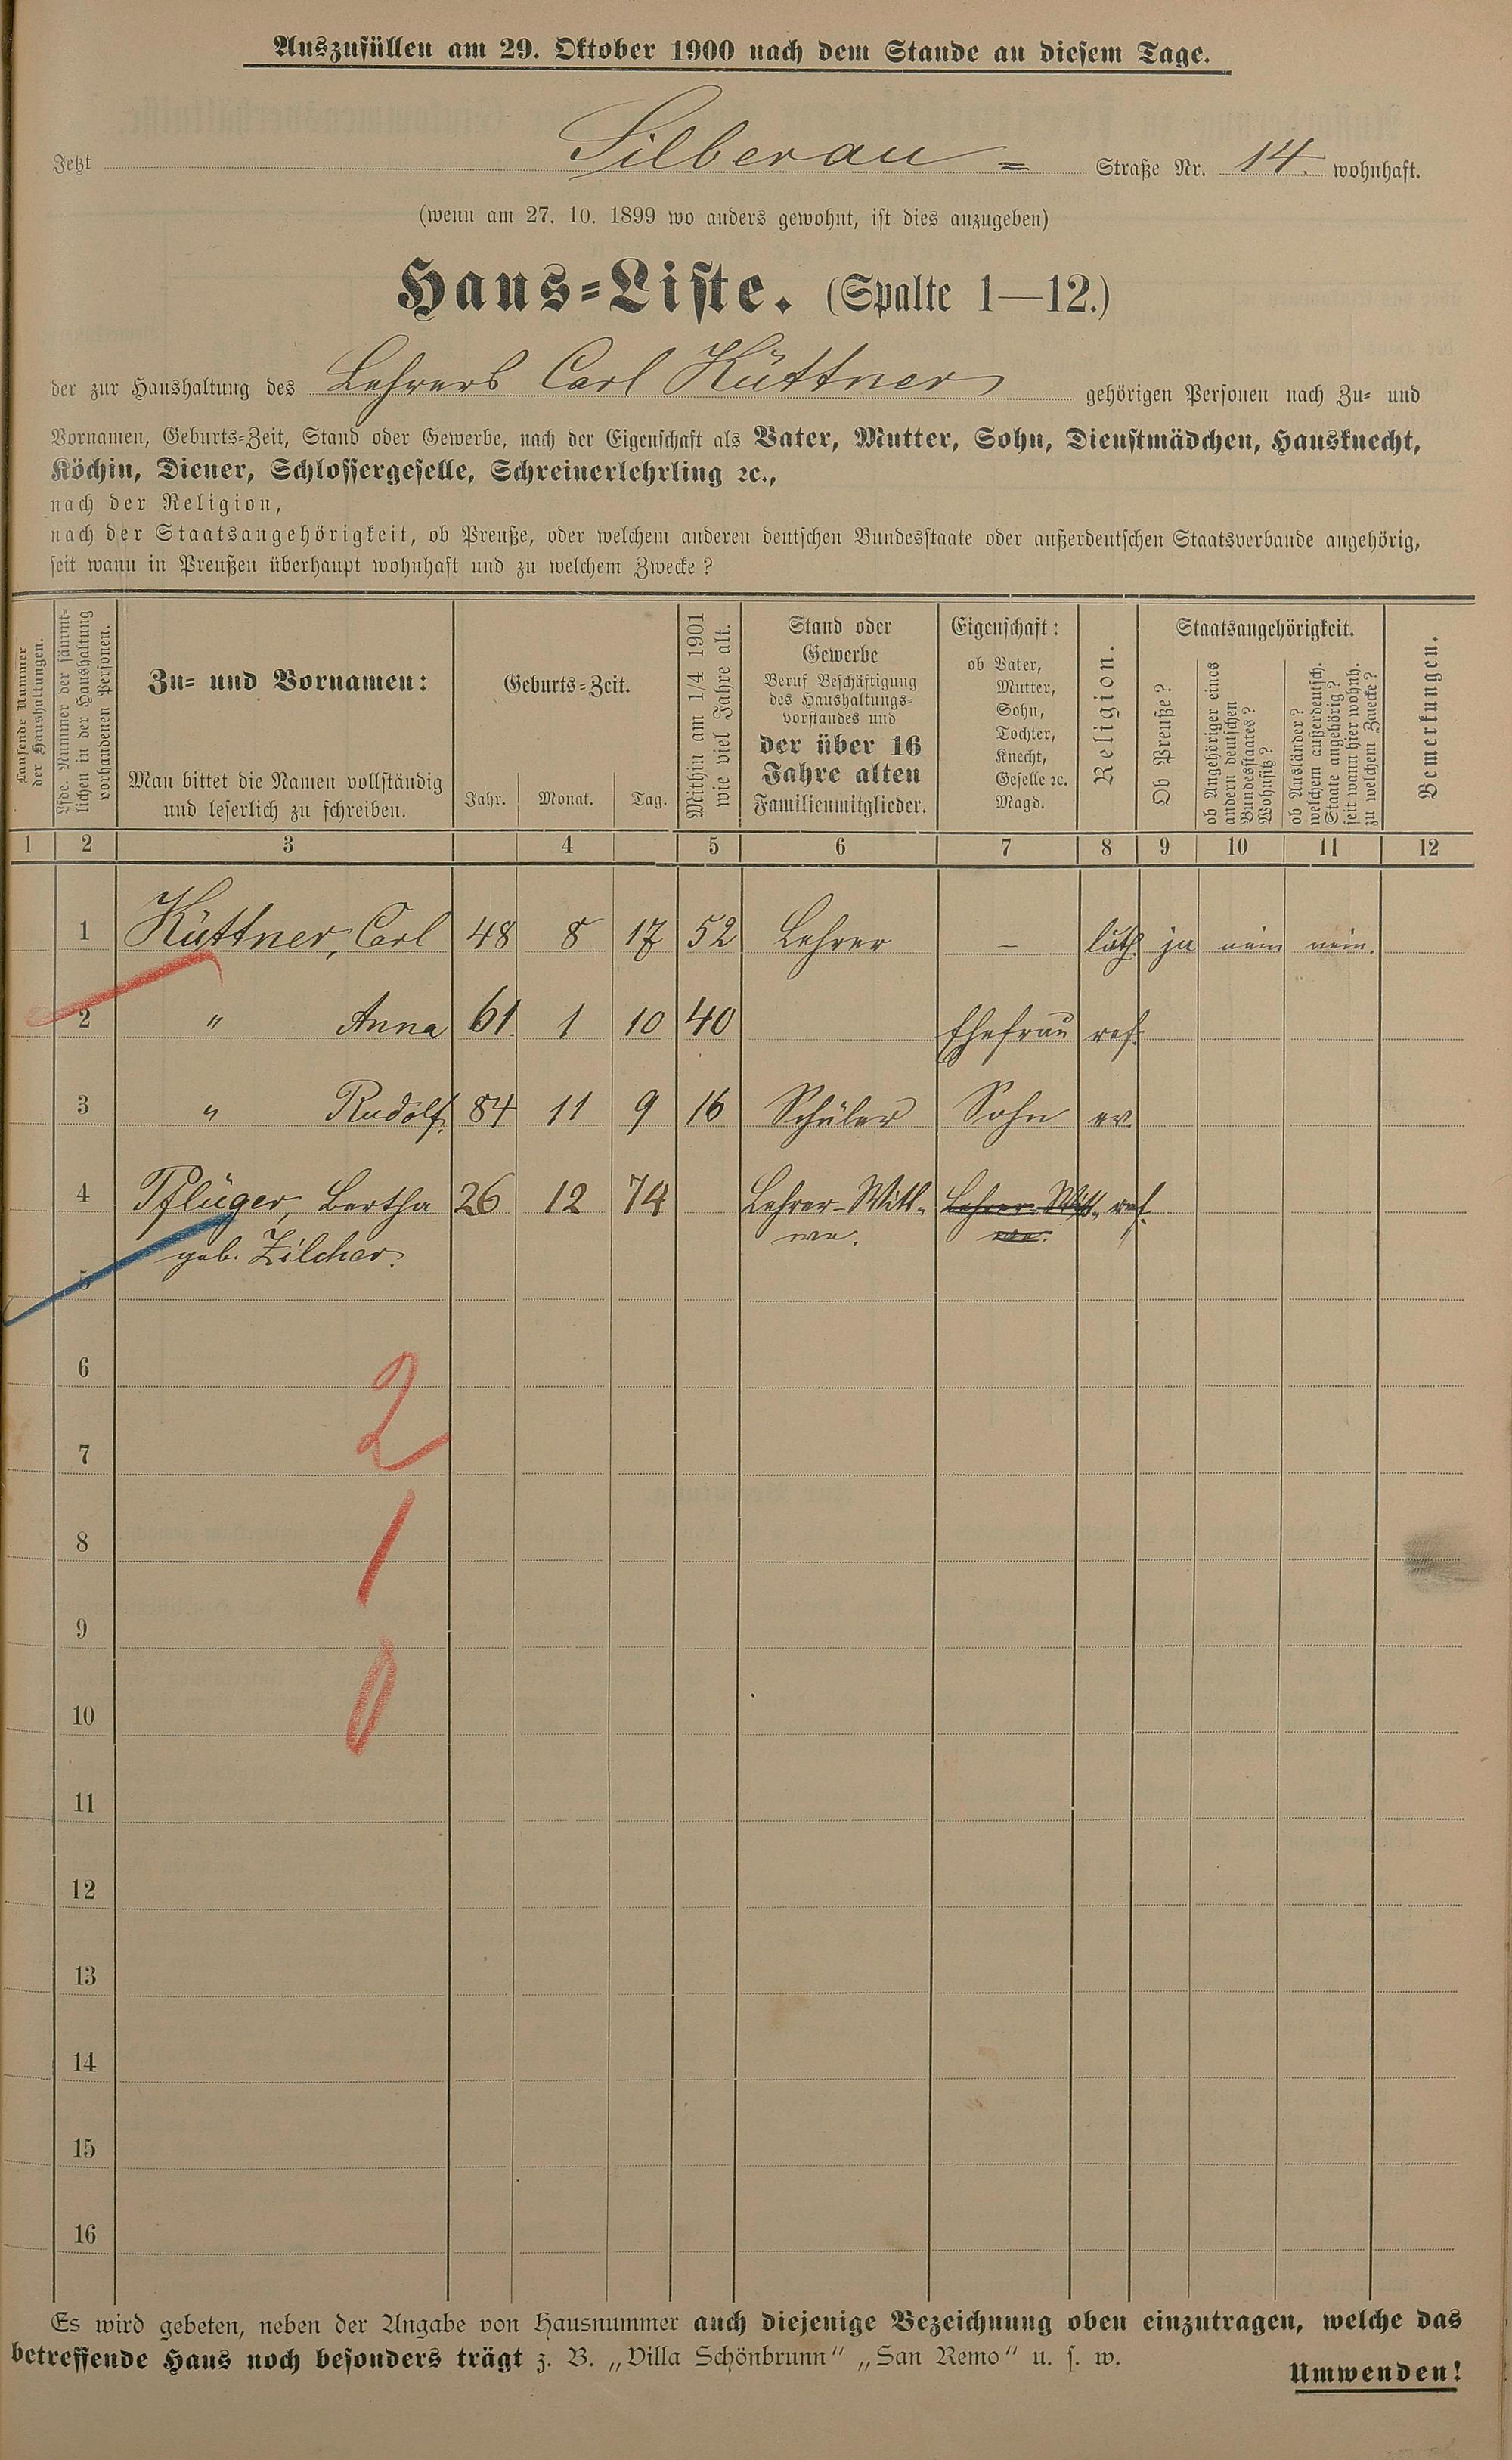 Auszufüllen am 29. Oktober 1900 nach dem Stande an diesem Tage.
Jetzt Silberau = Straße Nr. 14. wohnhaft.
(wenn am 27. 10. 1899 wo anders gewohnt, ist dies anzugeben)
Haus=Liste. (Spalte 1—12.)
der zur Haushaltung des Lehrers Carl Küttner gehörigen Personen nach Zu= und
Vornamen, Geburts=Zeit, Stand oder Gewerbe, nach der Eigenschaft als Vater, Mutter, Sohn, Dienstmädchen, Hausknecht,
Köchin, Diener, Schlossergeselle, Schreinerlehrling ꝛc.,
nach der Religion,
nach der Staatsangehörigkeit, ob Preuße, oder welchem anderen deutschen Bundesstaate oder außerdeutschen Staatsverbande angehörig,
seit wann in Preußen überhaupt wohnhaft und zu welchem Zwecke?
Laufende Nummer
der Haushaltungen.
Lfde. Nummer der sämmt=
lichen in der Haushaltung
vorhandenen Personen.
Zu= und Vornamen:
Man bittet die Namen vollständig
und leserlich zu schreiben.
Geburts=Zeit.
Jahr. Monat. Tag.
Mithin am 1/4 1901
wie viel Jahre alt.
Stand oder
Gewerbe
Beruf Beschäftigung
des Haushaltungs=
vorstandes und
der über 16
Jahre alten
Familienmitglieder.
Eigenschaft:
ob Vater,
Mutter,
Sohn,
Tochter,
Knecht,
Geselle ꝛc.
Magd.
Religion.
Staatsangehörigkeit.
Ob Preuße?
ob Angehöriger eines
andern deutschen
Bundesstaates?
Wohnsitz?
ob Ausländer?
welchem außerdeutsch.
Staate angehörig?
seit wann hier wohnh.
zu welchem Zwecke?
Bemerkungen.
1 2 3 4 5 6 7 8 9 10 11 12
1 Küttner, Carl 48 8 17 52 Lehrer — luth. ja nein nein.
2 " Anna 61. 1 10 40 Ehefrau ref.
3 " Rudolf. 84 11 9 16 Schüler Sohn ev.
4 Pflüger, Bertha 26 12 74 Lehrer-Witt- Lehrer-Witt- ref.
geb. Zilcher. we. we.
5
6
2
7
8
1
9
10
0
11
12
13
14
15
16
Es wird gebeten, neben der Angabe von Hausnummer auch diejenige Bezeichnung oben einzutragen, welche das
betreffende Haus noch besonders trägt z. B. „Villa Schönbrunn" „San Remo" u. s. w.
Umwenden!